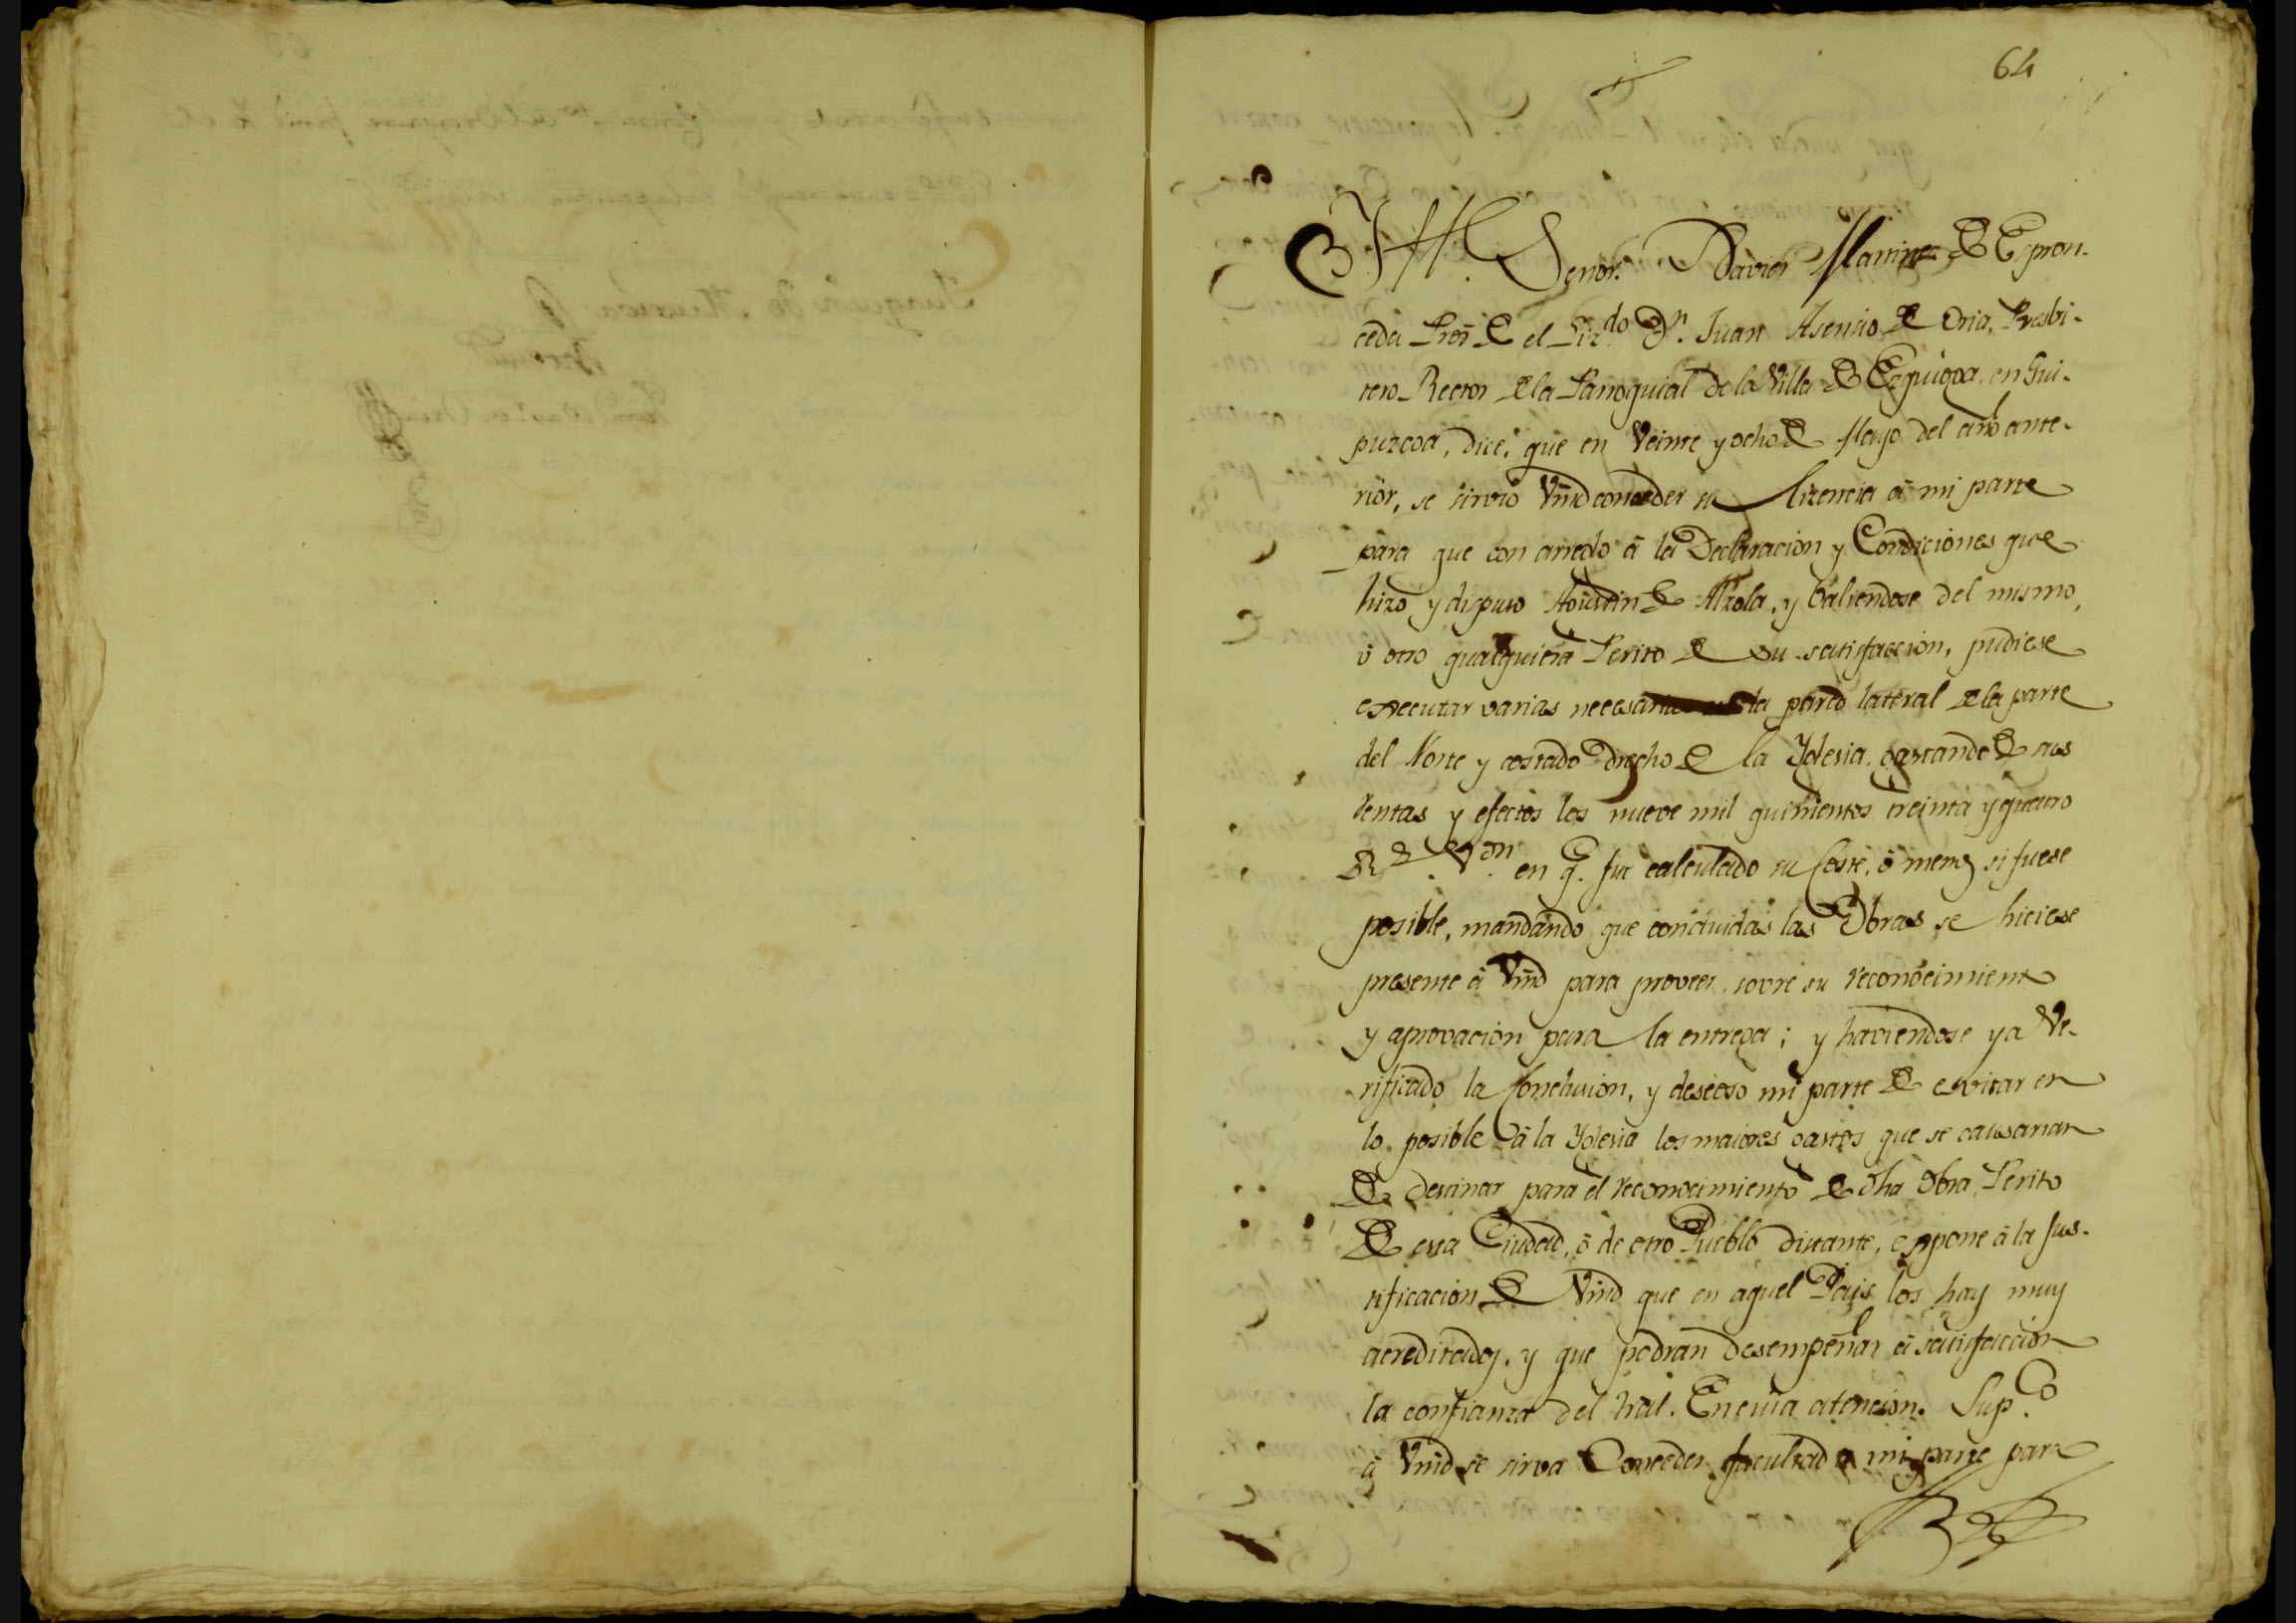 64
M. Y. Señor. Xavier Martinez de Espron-
ceda Pror. de el Liz.do Dn. Juan Asensio de Oria, Presbi-
tero Rector de la Parroquial de la Villa de Ezquioga, en Gui-
puzcoa, dice: que en Veinte y ocho de Mayo del año ante-
rior, se sirvió Vmd conceder su lizencia á mi parte
para que con arreglo á la Declaracion y Condiciones que
hizo y dispuso Agustin de Alzola, y baliendose del mismo,
ó otro qualquiera Perito de su satisfaccion, pudiese
executar varias necesarias en la pared lateral de la parte
del Norte y costado drecho de la Yglesia, gastando de sus
rentas y efectos los nueve mil quinientos treinta y quatro
Rs. Von. en q. fue calculado su Coste, ó menos si fuese
posible, mandando que concluidas las Obras se hiciese
presente á Vmd para proveer sovre su reconocimiento
y aprovacion para la entrega; y haviendose ya Ve-
rificado la Conclusion, y deseoso mi parte de evitar en
lo posible á la Yglesia los maiores gastos que se causarian
de destinar para el reconocimiento de dha Obra Perito
de esta Ciudad, ó de otro Pueblo distante, expone á la Jus-
tificacion de Vmd que en aquel Pais los hay muy
acreditados, y que podran desempeñar á satisfaccion
la confianza del tral. En cuia atencion. Sup.co
á Vmd se sirva Conceder facultad a mi parte para